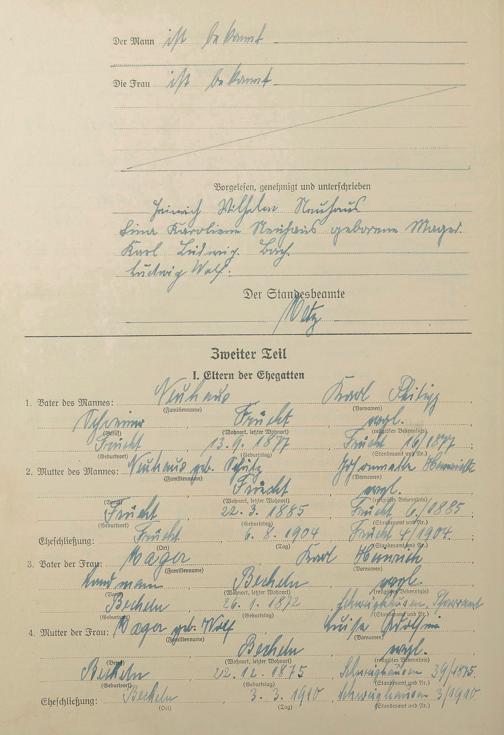 Der Mann ist bekannt
Die Frau ist bekannt
Vorgelesen, genehmigt und unterschrieben
Heinrich Wilhelm Neuhaus
Lina Karoline Neuhaus geborene Mager.
Karl Ludwig Bach.
Ludwig Wolf.
Der Standesbeamte
Zweiter Teil
I. Eltern der Ehegatten
1. Vater des Mannes: Neuhaus Karl Philipp
(Familienname) (Vornamen)
Schreiner Frücht evgl.
(Beruf) (Wohnort, letzter Wohnort) (religiöses Bekenntnis)
Frücht 13.9. 1877 Frücht 16/1877
(Geburtsort) (Geburtstag) (Standesamt und Nr.)
2. Mutter des Mannes: Neuhaus geb. Schütz Johannette Henriette
(Familienname) (Vornamen)
Frücht evgl.
(Beruf) (Wohnort, letzter Wohnort) (religiöses Bekenntnis)
Frücht 22. 3. 1885 Frücht 6/1885
(Geburtsort) (Geburtstag) (Standesamt und Nr.)
Eheschließung: Frücht 6. 8. 1904 Frücht 4/1904.
(Ort) (Tag) (Standesamt und Nr.)
3. Vater der Frau: Mager Karl Heinrich
(Familienname) (Vornamen)
Landmann Becheln evgl.
(Beruf) (Wohnort, letzter Wohnort) (religiöses Bekenntnis)
Becheln 26. 1. 1872 Schweighausen
(Geburtsort) (Geburtstag) (Standesamt und Nr.)
4. Mutter der Frau: Mager geb. Wolf Luise
(Familienname) (Vornamen)
Becheln evgl.
(Beruf) (Wohnort, letzter Wohnort) (religiöses Bekenntnis)
Becheln 22. 12. 1875 Schweighausen 39/1875.
(Geburtsort) (Geburtstag) (Standesamt und Nr.)
Eheschließung: Becheln 3. 3. 1910 Schweighausen 3/1910
(Ort) (Tag) (Standesamt und Nr.)